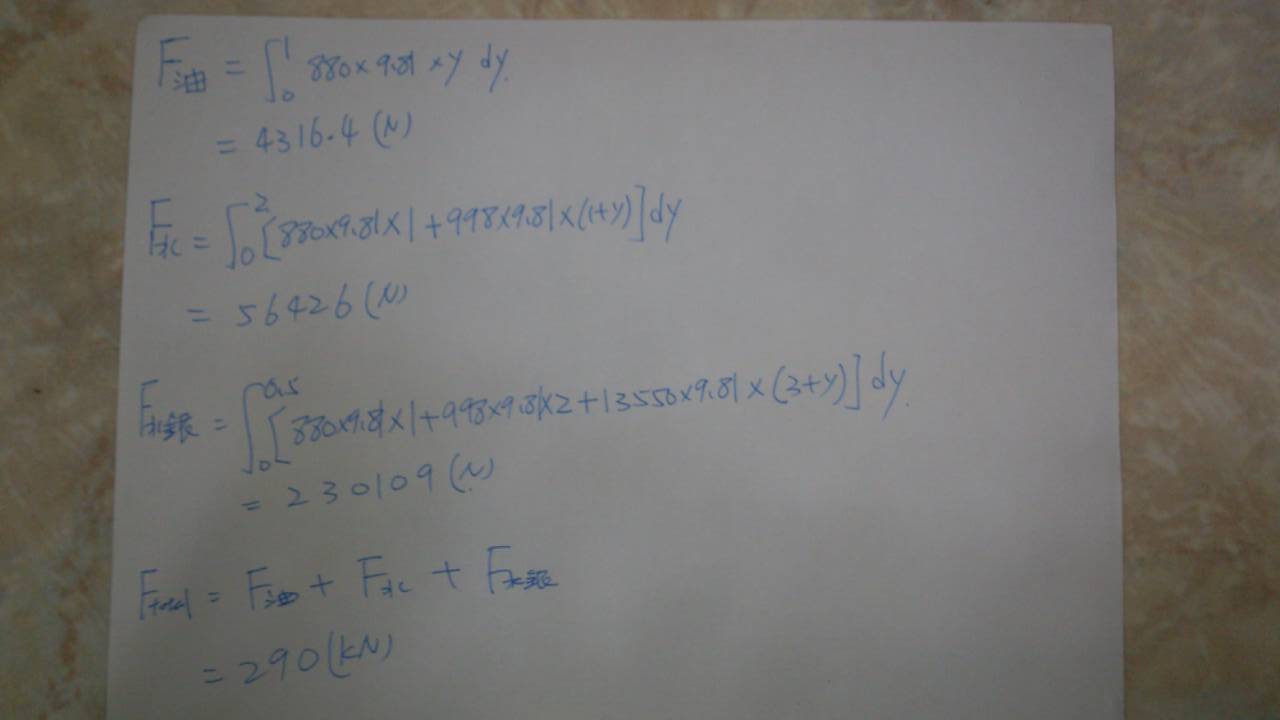 F油 = ∫₀¹ 880×9.81×y dy
= 4316.4 (N)
F水 = ∫₀² [880×9.81×1+998×9.81×(1+y)] dy
= 56426 (N)
F水銀 = ∫₀^0.5 [880×9.81×1+998×9.81×2+13550×9.81×(3+y)] dy
= 230109 (N)
Ftotal = F油 + F水 + F水銀
= 290 (kN)